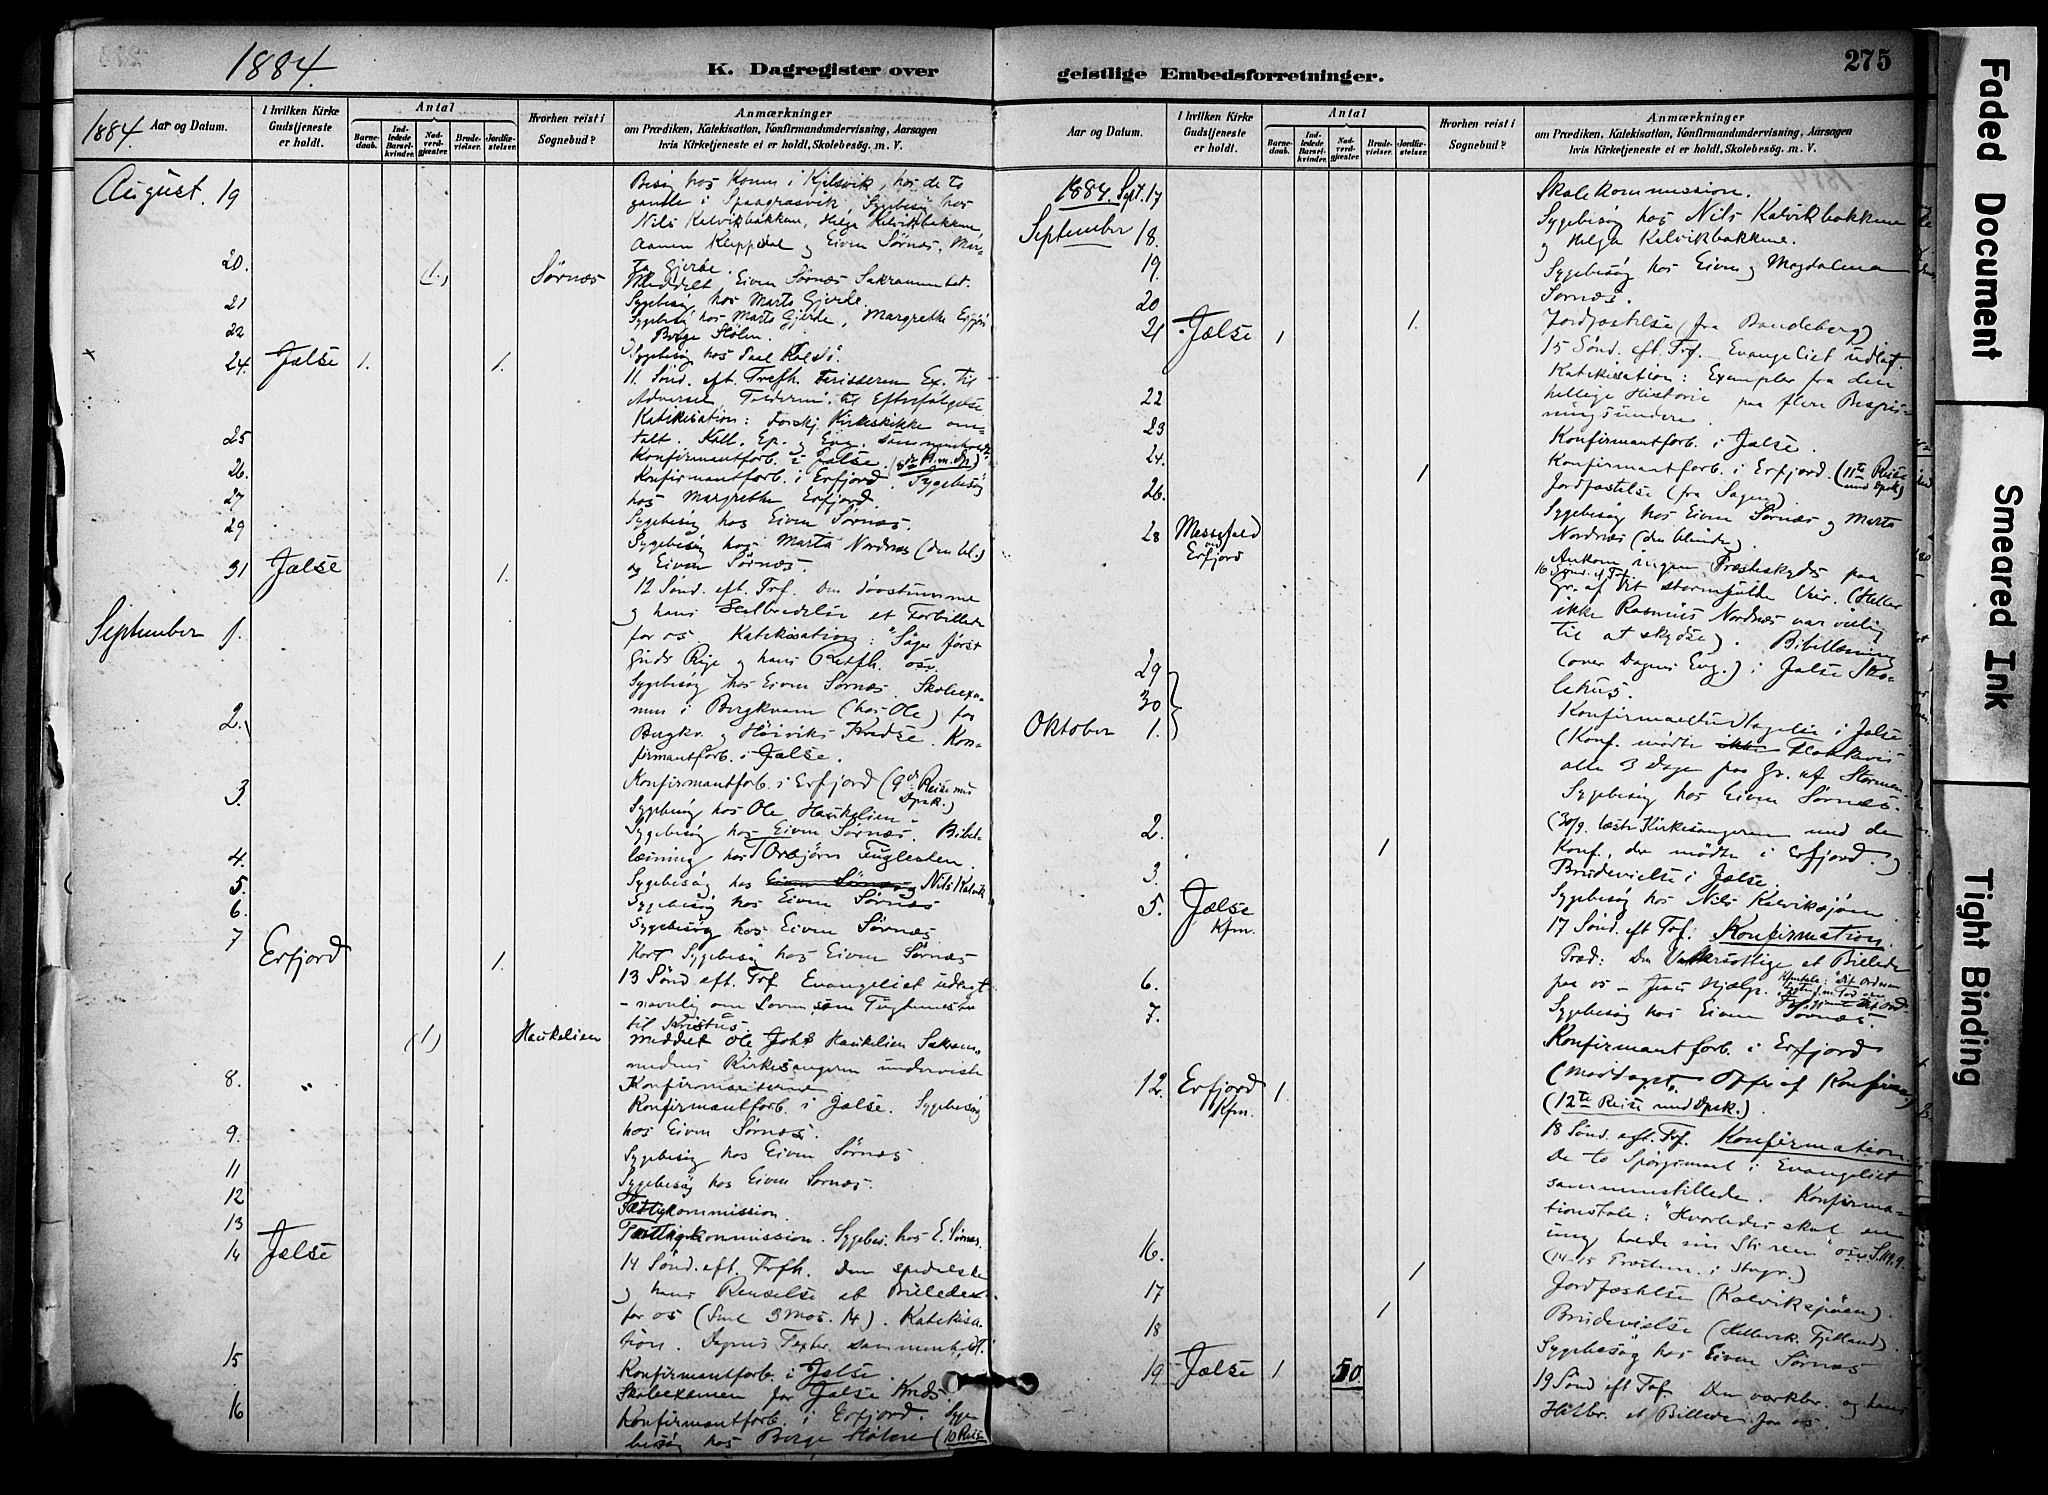 1884.
K. Dagregister over
1884. Aar og Datum.
I hvilken Kirke Gudstjeneste er holdt.
Antal
Barnedaab.
Indledede Barselkvinder.
Nadverdgjæster.
Brudevielser.
Jordfæstelser.
Hvorhen reist i Sognebud?
Anmærkninger
om Prædiken, Katekisation, Konfirmandundervisning, Aarsagen
hvis Kirketjeneste ei er holdt, Skolebesøg. m. V.
August. 19
Besøg hos Konen i Kjilsvik, hos de to
gamle i Spaagrasvik, Sygebesøg hos
Nils Kalvikbakken, Helge Kalvikbakken,
Eiven Sørnæs, Mar-
ta Gjerde.
20. (1.) Sørnæs
Meddelt Eiven Sørnæs Sakramentet.
21
Sygebesøg hos Marta Gjerde.
22
Sygebesøg hos Marta Gjerde, Margrethe Erfjord
og Børge Stølen.
Sygebesøg hos Paal
24. Jælse 1. 1.
11. Sønd. eft. Trefh. Farisæeren Ex. til
Advarsel, Tolderen til Efterfølgelse.
Katekisation: Forskj. Kirkeskikke om-
talt. Koll. Ep. og Evg. sammenholdt.
25
Konfirmantforb. i Jælse.
26.
Konfirmantforb. i Erfjord. Sygebesøg
hos Margrethe Erfjord.
27
Sygebesøg hos Eiven Sørnæs.
29
Sygebesøg hos Marta Nordnæs (den bl.)
og Eiven Sørnæs.
31 Jælse 1.
12 Sønd. eft. Trf. Den døvstumme
og hans Helbredelse et Forbillede
for os. Katekisation: "Søger først
Guds Rige og hans Retfh. osv.
September 1.
Sygebesøg hos Eiven Sørnæs. Skoleexa-
men i Bergkvam (hos Ole) for
Bergkv. og Høiviks Kredse. Kon-
firmantforb. i Jælse.
2.
Konfirmantforb. i Erfjord (9de Reise med
Dpsk.)
3.
Sygebesøg hos Ole Haukelien.
Sygebesøg hos Eiven Sørnæs. Bibel-
læsning hos Torbjørn Fuglesten.
4.
Sygebesøg hos Eiven Sørnæs Nils Kalvik
5.
Sygebesøg hos Eiven Sørnæs
6.
Sygebesøg hos Eiven Sørnæs.
7 Erfjord 1.
Kort Sygebesøg hos Eiven Sørnæs
13 Sønd. eft. Trf. Evangeliet udlagt
- navnlig om Loven som Tugtemester
til Kristus.
(1) Haukelien
Meddelt Ole Johs Haukelien Sakram.,
medens Kirkesangeren underviste
Konfirmanterne
8. "
Konfirmantforb. i Jælse. Sygebesøg
hos Eiven Sørnæs.
9.
Sygebesøg hos Eiven Sørnæs.
11
Sygebesøg hos Eiven Sørnæs.
12
Fattigkommission.
13
Fattigkommission. Sygebes. hos E. Sørnæs.
14 Jælse
14 Sønd. eft. Trfh. Den spedalske
og hans Renselse et Billede
for os (Sml 3 Mos. 14). Katekisa-
tion. Dagens Texter sammenholdt.
15
Konfirmantforb. i Jælse.
Skoleexamen for Jælse Kreds.
16
Konfirmantforb. i Erfjord. Syge-
besøg hos Børge Stølen (10 Reise
geistlige Embedsforretninger.
275
Aar og Datum.
I hvilken Kirke Gudstjeneste er holdt.
Antal
Barnedaab.
Indledede Barselkvinder.
Nadverdgjæster.
Brudevielser.
Jordfæstelser.
Hvorhen reist i Sognebud?
Anmærkninger
om Prædiken, Katekisation, Konfirmandundervisning, Aarsagen
hvis Kirketjeneste ei er holdt, Skolebesøg. m. V.
1884. Sept. 17
Skolekommission.
September 18.
Sygebesøg hos Nils Kalvikbakkene
og Helga Kalvikbakkene.
19.
Sygebesøg hos Eiven og Magdalena
Sørnæs.
20 1.
Jordfæstelse (fra Bandeberg)
21 Jælse 1
15 Sønd. eft. Trf. Evangeliet udlagt.
Katekisation: Exempler fra den
hellige Historie paa flere Bespis-
ningsundere.
22
Konfirmantforb. i Jælse.
23
Konfirmantforb. i Erfjord. (11te Reise
med Dpsk)
24. 1
Jordfæstelse (fra Sagen).
26.
Sygebesøg hos Eiven Sørnæs og Marta
Nordnæs (den blinde).
28 Messefald
ved
Erfjord
Ankom ingen Præsteskyds paa
16 Sønd. ef. Trf.
Gr. af det stormfulde Veir. (Heller
ikke Rasmus Nordnæs var villig
til at skydse). Bibellæsning
(over Dagens Evg.) i Jælse Sko-
lehus.
29
30
Oktober 1.
Konfirmantudtagelse i Jælse
(Konf. mødte ikke Flokkevis
alle 3 Dage paa Gr. af Stormen.
Sygebesøg hos Eiven Sørnæs.
(30/9. læste Kirkesangeren med de
Konf., der mødte i Erfjord.)
2. 1
Brudevielse i Jælse.
3.
Sygebesøg hos Nils Kalviksjøen.
5. Jælse
Kfm.
17 Sønd. eft Trf: Konfirmation.
Præd: Den Vattersottige et Billede
paa os - Jesus Hjælp.
6.
Sygebesøg hos Eiven Sørnæs.
7.
Konfirmantforb. i Erfjord
(Modtaget Offer af Konfirm.)
(12te Reise med Dpsk.).
12. Erfjord 1.
Kfm.
18 Sønd. eft. Trf. Konfirmation.
De to Spørgsmaal i Evangeliet
sammenstillede. Konfirma-
tionstale: "Hvorledes skal en
ung holde sin Sti ren" osv S. 119,9.
(14-15 Provsten i Stvgr.)
16. 1
Jordfæstelse (Kalviksjøen).
17 1
Brudevielse (Hellevik. Fjelland).
18
Sygebesøg hos Eiven Sørnæs
19 Jælse 1 50.
19 Sønd eft Trf. Den værkbr. og hans
Helbr. et Billede for os.
Faded Document
Smeared Ink
Tight Binding